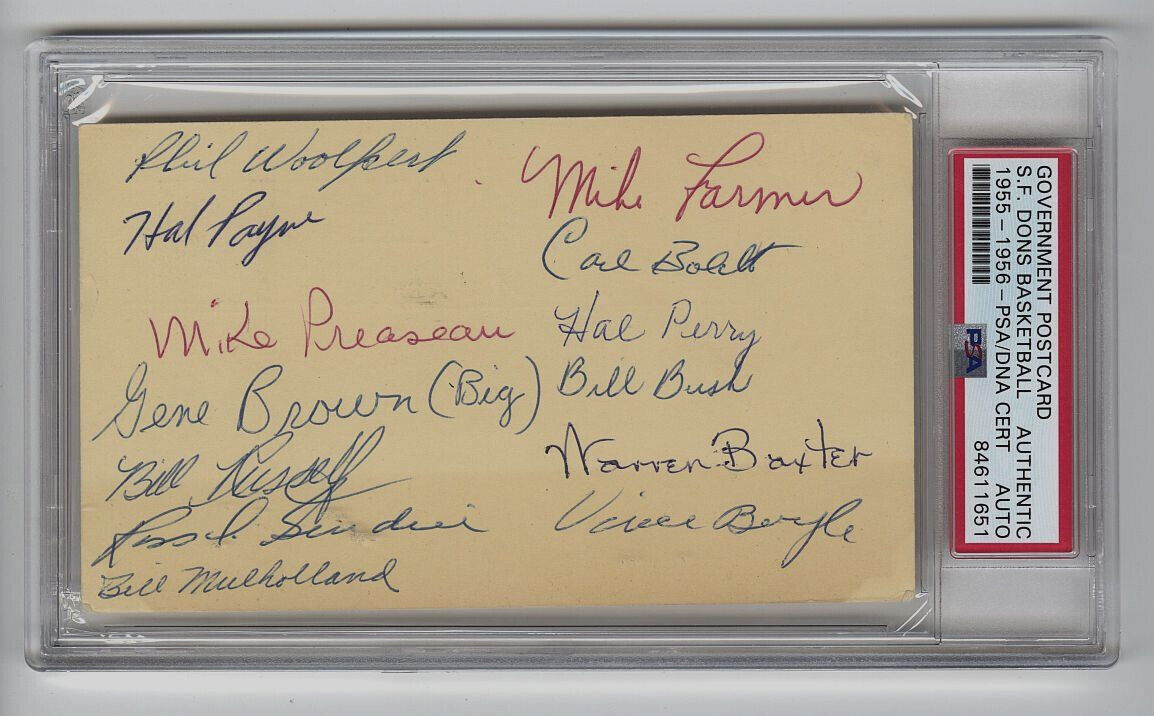 Phil Woolpert
Hal Payne
Mike Preaseau
Gene Brown (Big)
Bill Russell
Bill Mulholland
Mike Farmer
Carl Boldt
Hal Perry
Bill Bush
Warren Baxter
Vince Boyle
GOVERNMENT POSTCARD
S.F. DONS BASKETBALL AUTHENTIC
1955 - 1956 - PSA/DNA CERT AUTO
84611651
PSA